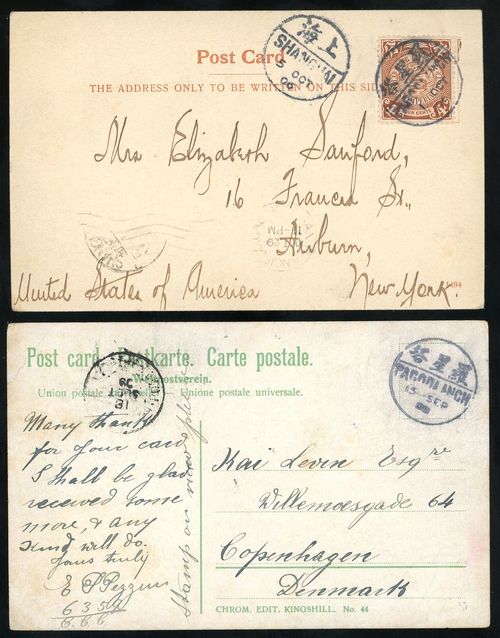 Post Card
THE ADDRESS ONLY TO BE WRITTEN ON THIS SIDE
上海
SHANGHAI
5
OCT
09
Mrs Elizabeth Sanford,
16 Frances St.,
Auburn,
New York.
United States of America
11-PM
Post card. Postkarte. Carte postale.
Weltpostverein.
Union postale universelle. Unione postale universale.
Many thanks
for your card
I shall be glad
received some
more & any
kind will do.
Yours truly
635
666
Stamp on view
羅星塔
PAGODA ANCH
13 SEP
Kai Levin Esqre
Willemoesgade 64
Copenhagen
Denmark
CHROM. EDIT. KINGSHILL. No. 44